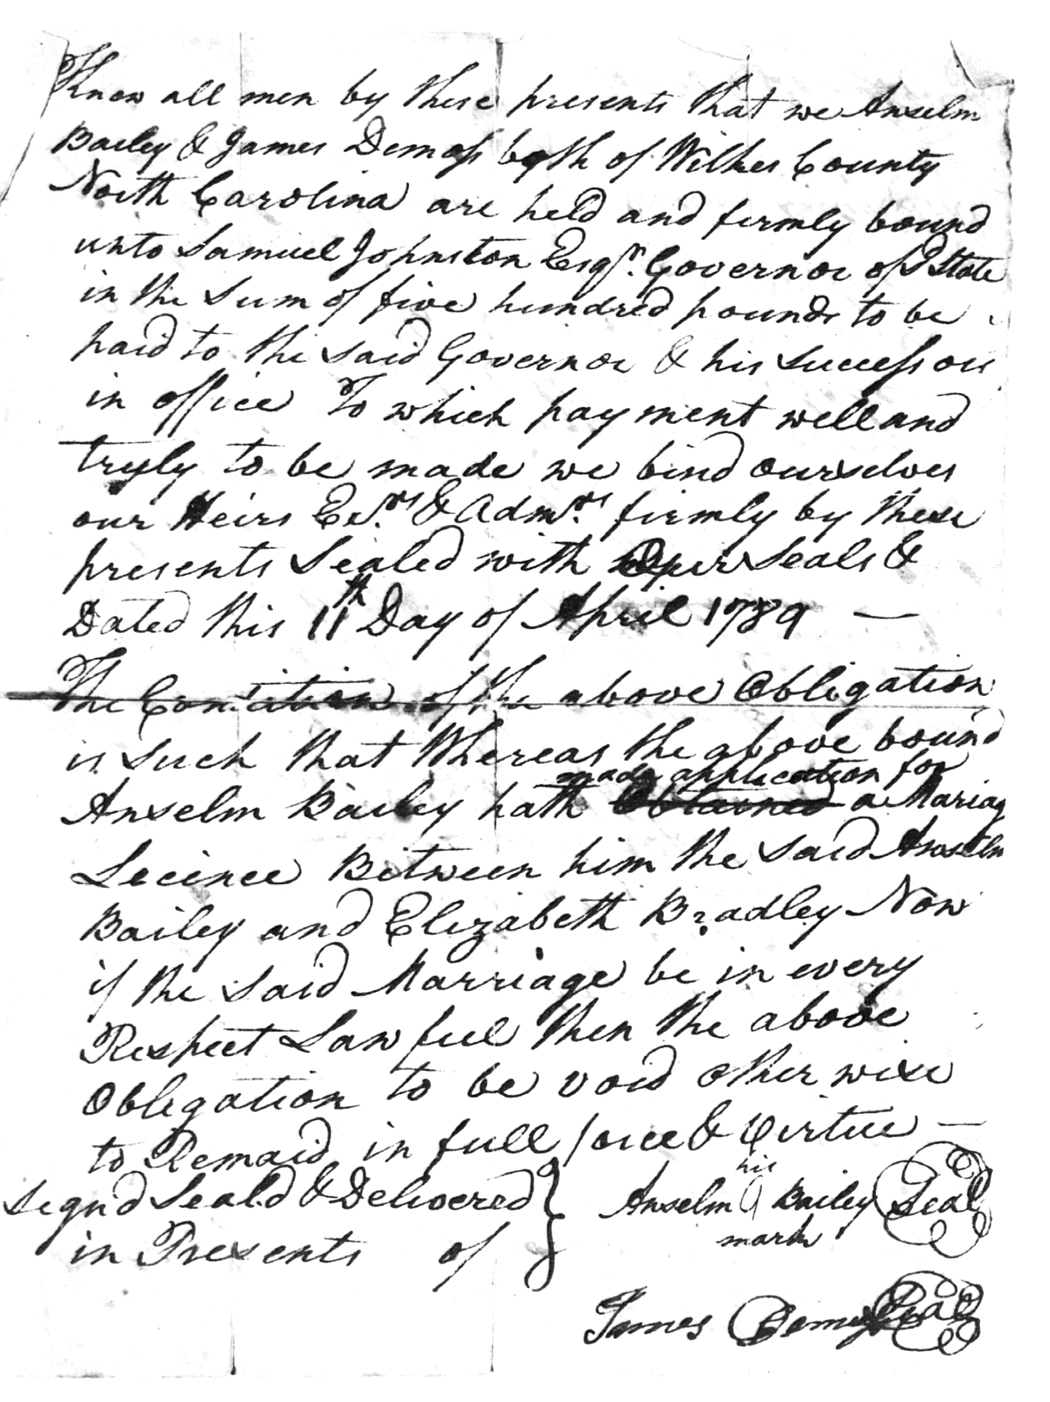 Know all men by these presents that we Anselm
Bailey & James Demoss both of Wilkes County
North Carolina are held and firmly bound
unto Samuel Johnston Esqr. Governor of sd State
in the Sum of five hundred pounds to be
paid to the said Governor & his Successors
in office To which payment well and
tryly to be made we bind ourselves
our Heirs Exrs & Admrs firmly by these
presents Sealed with our Seals &
Dated this 11th Day of April 1789 —
The Condition of the above Obligation
is Such that Whereas the above bound
made application for
Anselm Bailey hath Obtained a Mariag
Lecince Between him the said Anselm
Bailey and Elizabeth Bradley Now
if the said Marriage be in every
Respect Lawfuel then the above
Obligation to be void other wise
to Remaid in full force & Virtue —
Segn'd Seald & Delivered } Anselm his Bailey Seal
mark
in Presents of
James Demoss Seal